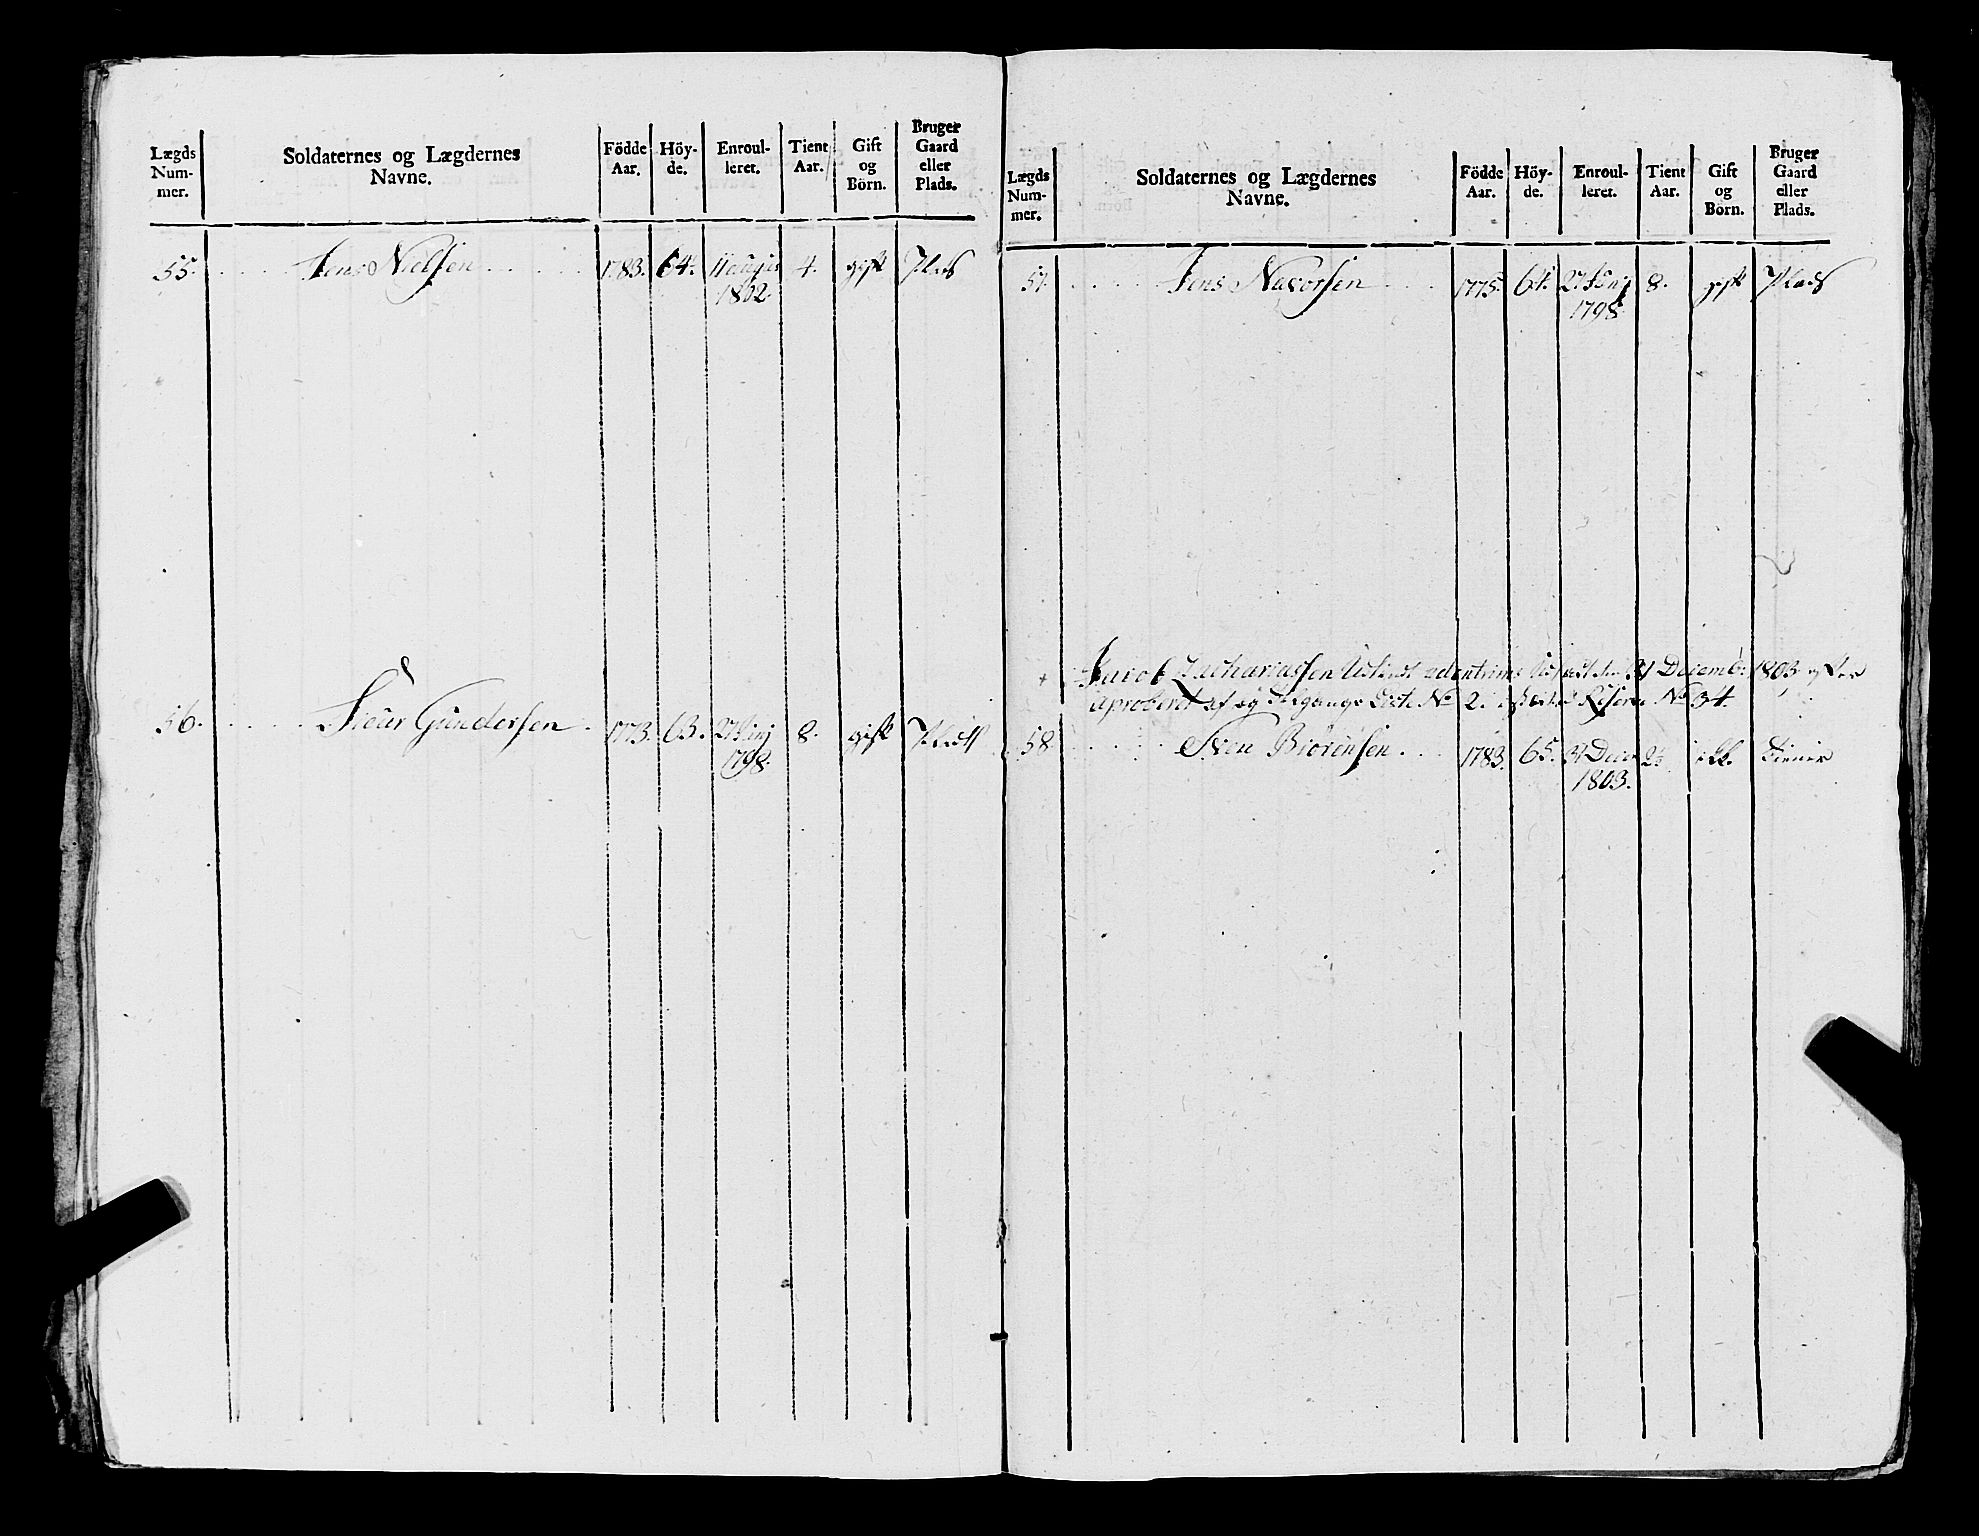 Lægds Num- mer. Soldaternes og Lægdernes Navne. Födde Aar. Höy- de. Enroul- leret. Tient Aar. Gift og Börn. Bruger Gaard eller Plads.
55. Jens Nielsen 1783. 64. 11 1802. 4. gift Plads
56. Siour Gundersen 1773. 63. 27 Junj 1798. 8. gift Plads
Lægds Num- mer. Soldaternes og Lægdernes Navne. Födde Aar. Höy- de. Enroul- leret. Tient Aar. Gift og Börn. Bruger Gaard eller Plads.
57. Jens Navorsen 1775. 64. 27 Junj 1798. 8. gift Plads
Jacob Zachariassen 31 Decemb: 1803 efter
aproberet af og Tilgangs Liste No 2. Reserve No 34.
58. Sven Biörensen 1783. 65. 31 Decbr 1803. 2½ ikk. tiener